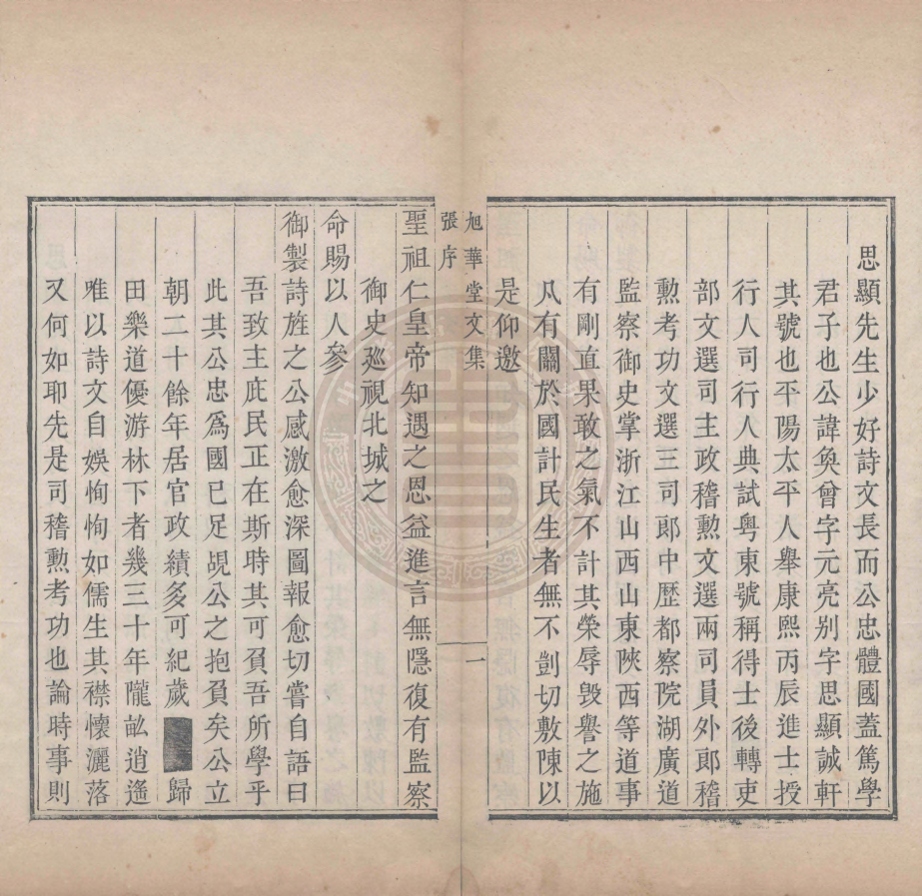 思顯先生少好詩文長而公忠體國蓋篤學
君子也公諱奐曾字元亮别字思顯誠軒
其號也平陽太平人舉康熙丙辰進士授
行人司行人典試粤東號稱得士後轉吏
部文選司主政稽勲文選兩司員外郎稽
勲考功文選三司郎中歴都察院湖廣道
監察御史掌浙江山西山東陜西等道事
有剛直果敢之氣不計其榮辱毁譽之施
凡有關於國計民生者無不剴切敷陳以
是仰邀
旭華堂文集
張序
一
聖祖仁皇帝知遇之恩益進言無隱復有監察
御史廵視北城之
命賜以人參
御製詩旌之公感激愈深圖報愈切嘗自語曰
吾致主庇民正在斯時其可負吾所學乎
此其公忠爲國已足覘公之抱負矣公立
朝二十餘年居官政績多可紀歲歸
田樂道優游林下者幾三十年隴畝逍遙
唯以詩文自娛恂恂如儒生其襟懷灑落
又何如耶先是司稽勲考功也論時事則